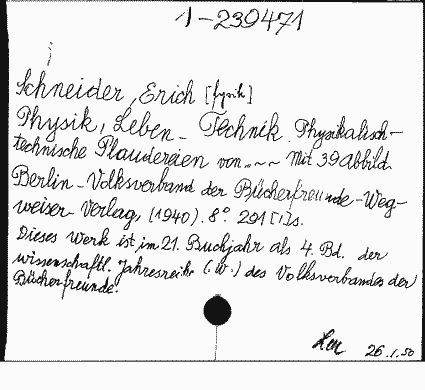 1-239471
Schneider, Erich [fysik]
Physik, Leben - Technik. Physikalisch-
technische Plaudereien von „~~ Mit 39 Abbild.
Berlin - Volksverband der Bücherfreunde-Weg-
weiser-Verlag, (1940). 8°. 291 [1] s.
Dieses Werk ist im 21. Buchjahr als 4. Bd. der
wissenschaftl. Jahresreihe (.W.) des Volksverbandes der
Bücherfreunde.
26.1.50